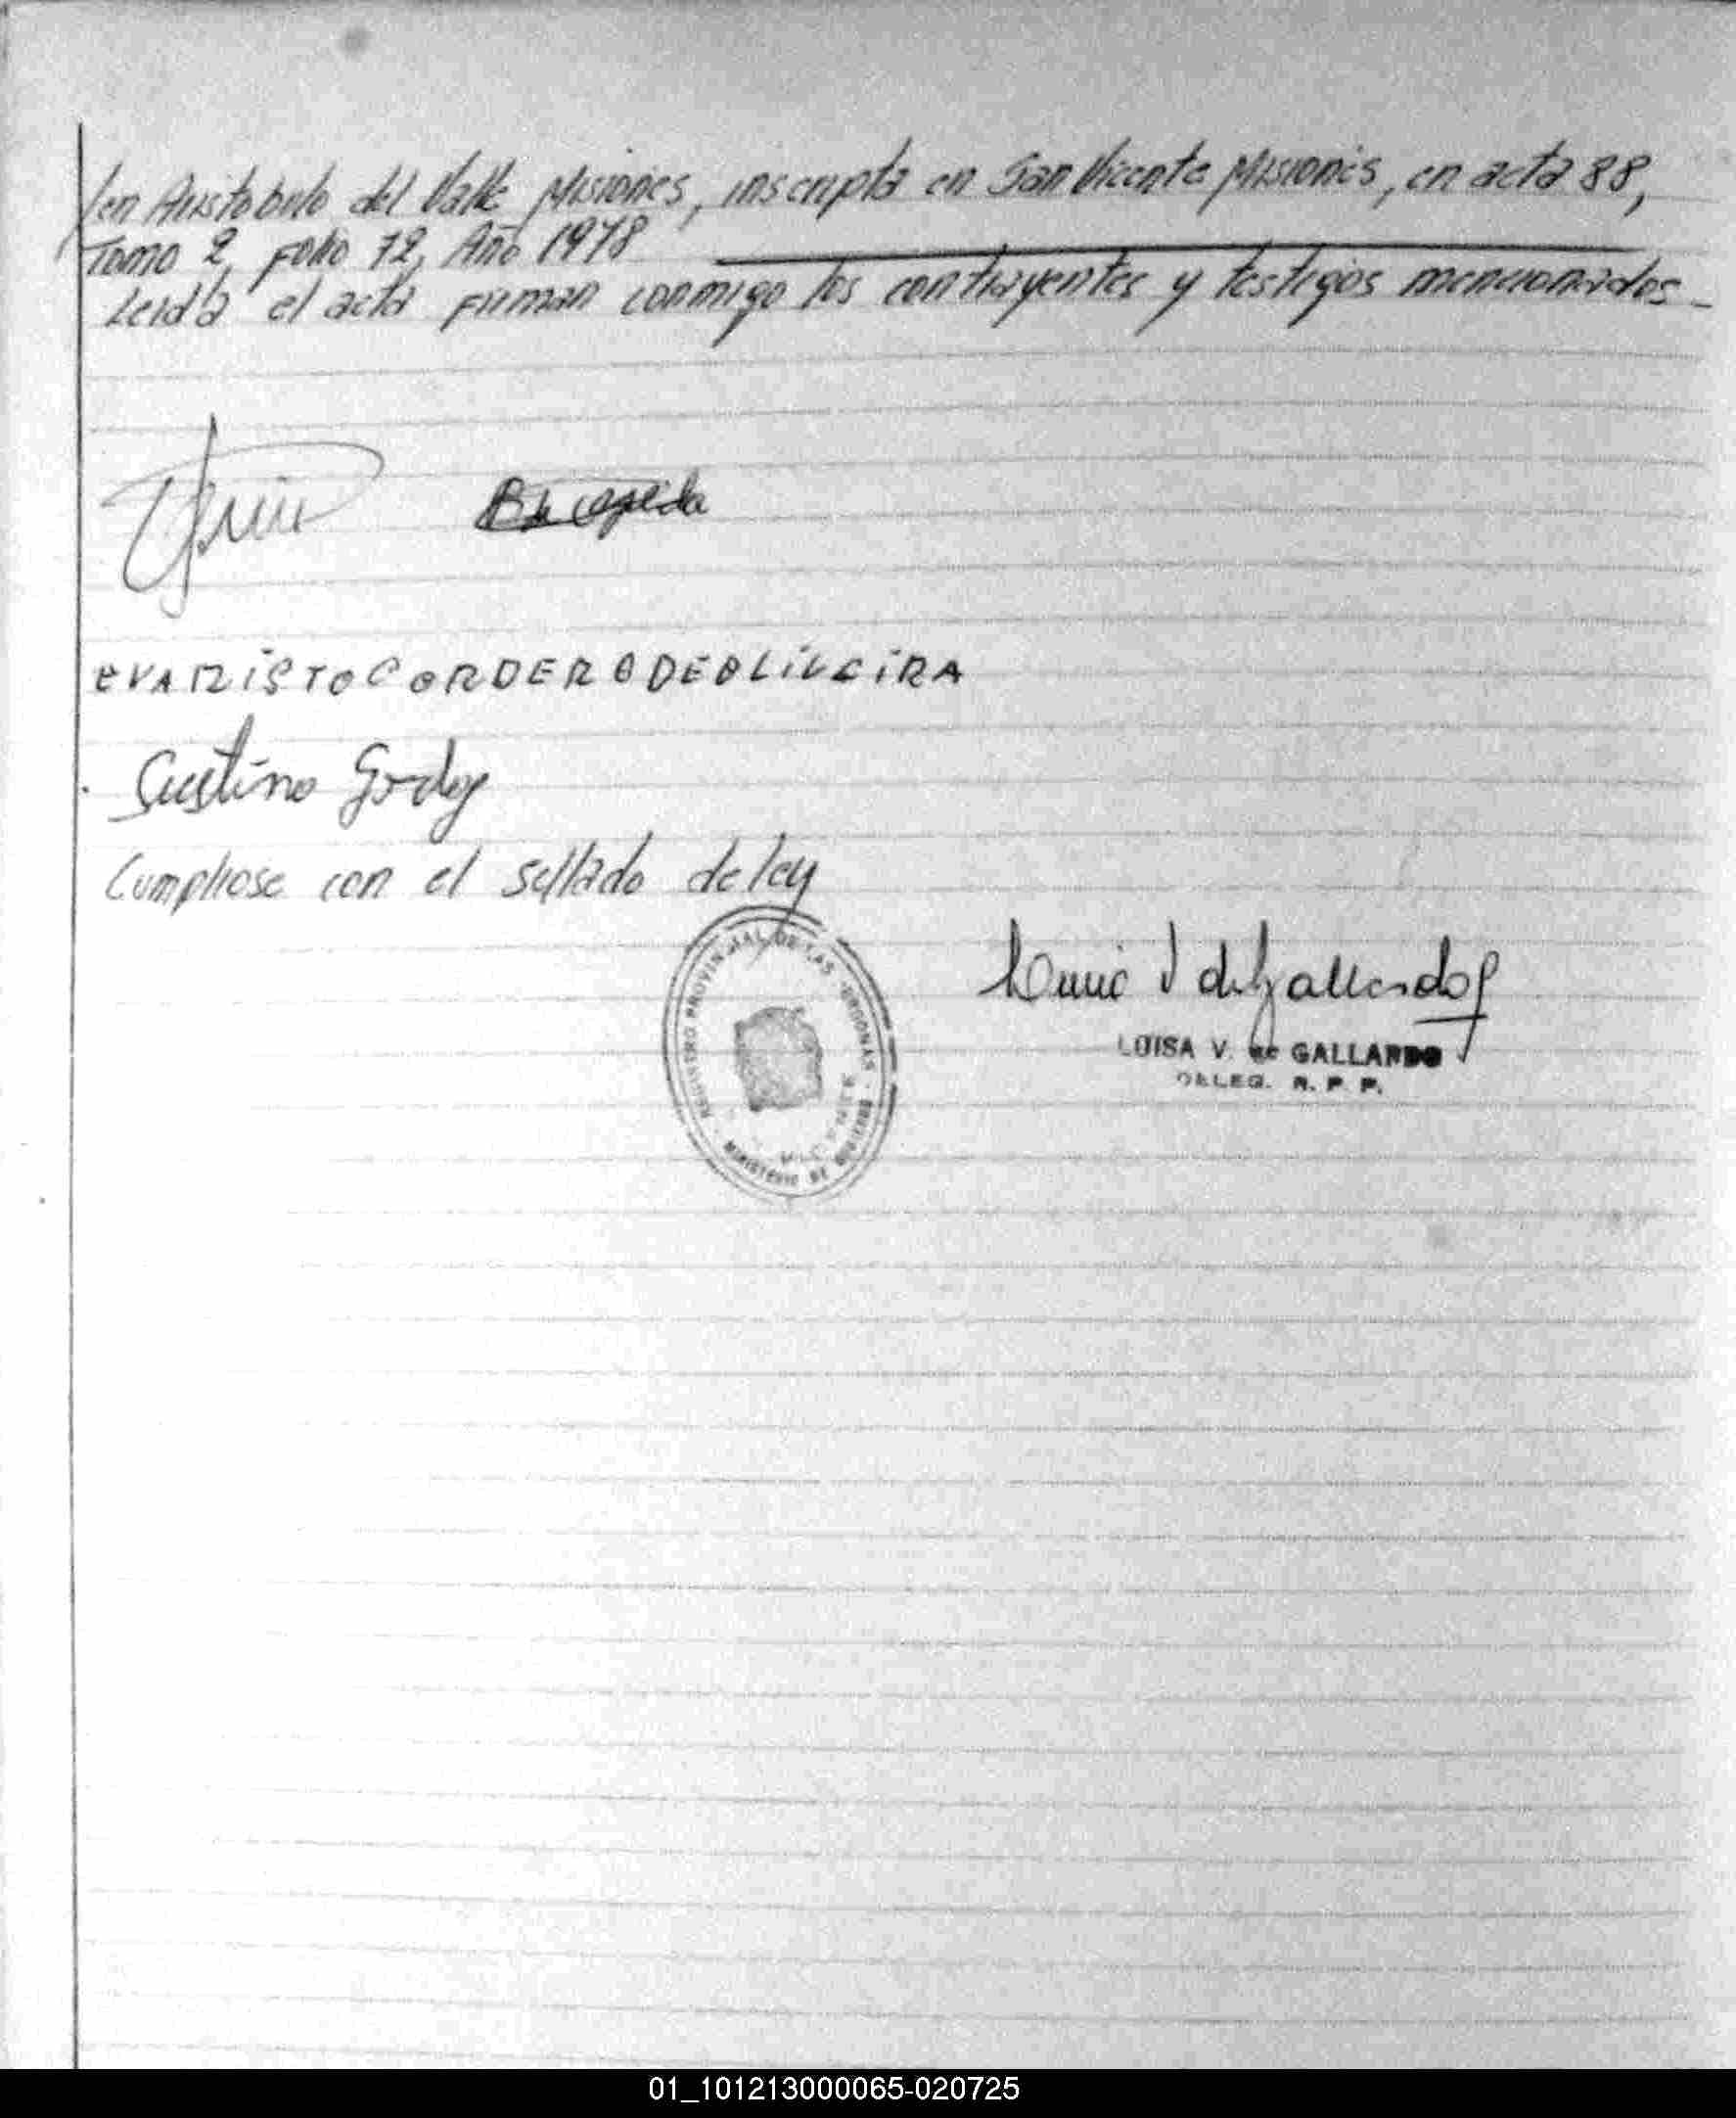 /en Aristobulo del Valle Misiones, inscripta en San Vicente Misiones, en acta 88,
Tomo 2, Folio 72, Año 1978
Leida el acta firman conmigo los contrayentes y testigos mencionados-
EVARISTO CORDERO DE OLIVEIRA
Justino Godoy
Cumpliose con el sellado de ley
REGISTRO PROVINCIAL DE LAS PERSONAS
MINISTERIO DE GOBIERNO
MISIONES
LUISA V. de GALLARDO
DELEG. R. P. P.
01_101213000065-020725